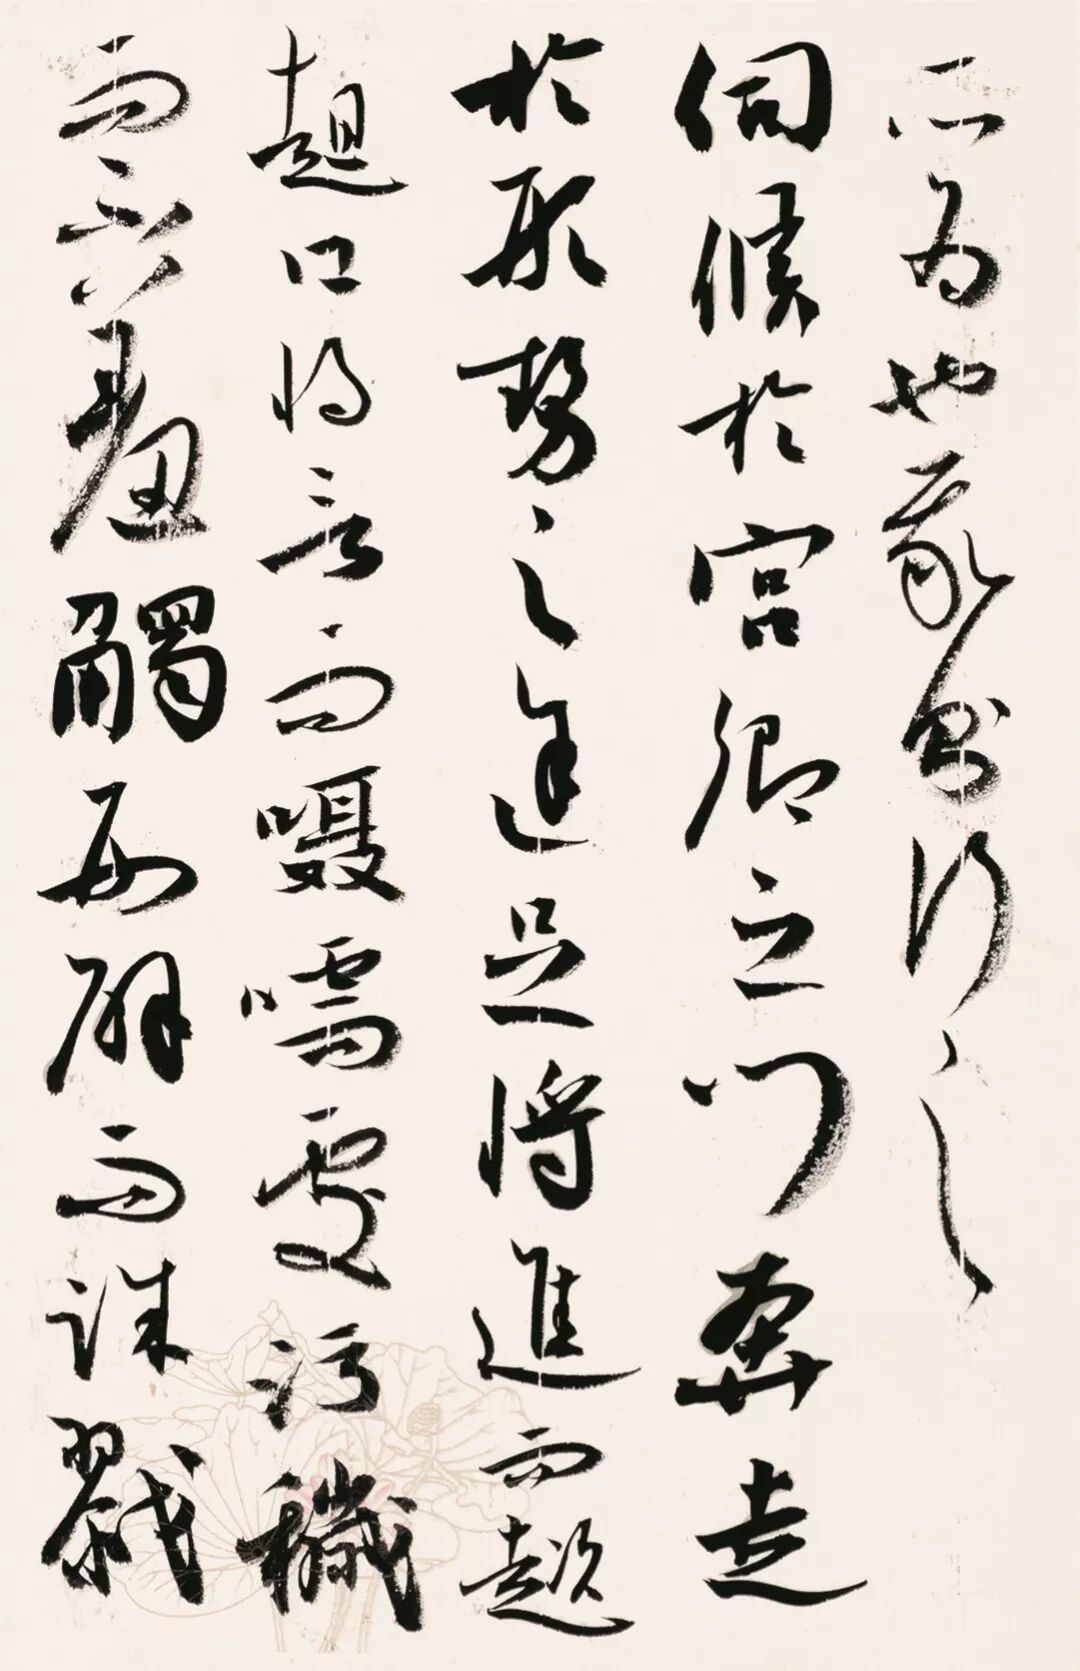 所為也我則行之
伺候於宮卿之門奔走
於形勢之途足將進而趑
趄口將言而囁嚅處污穢
而不羞觸刑辟而誅戮